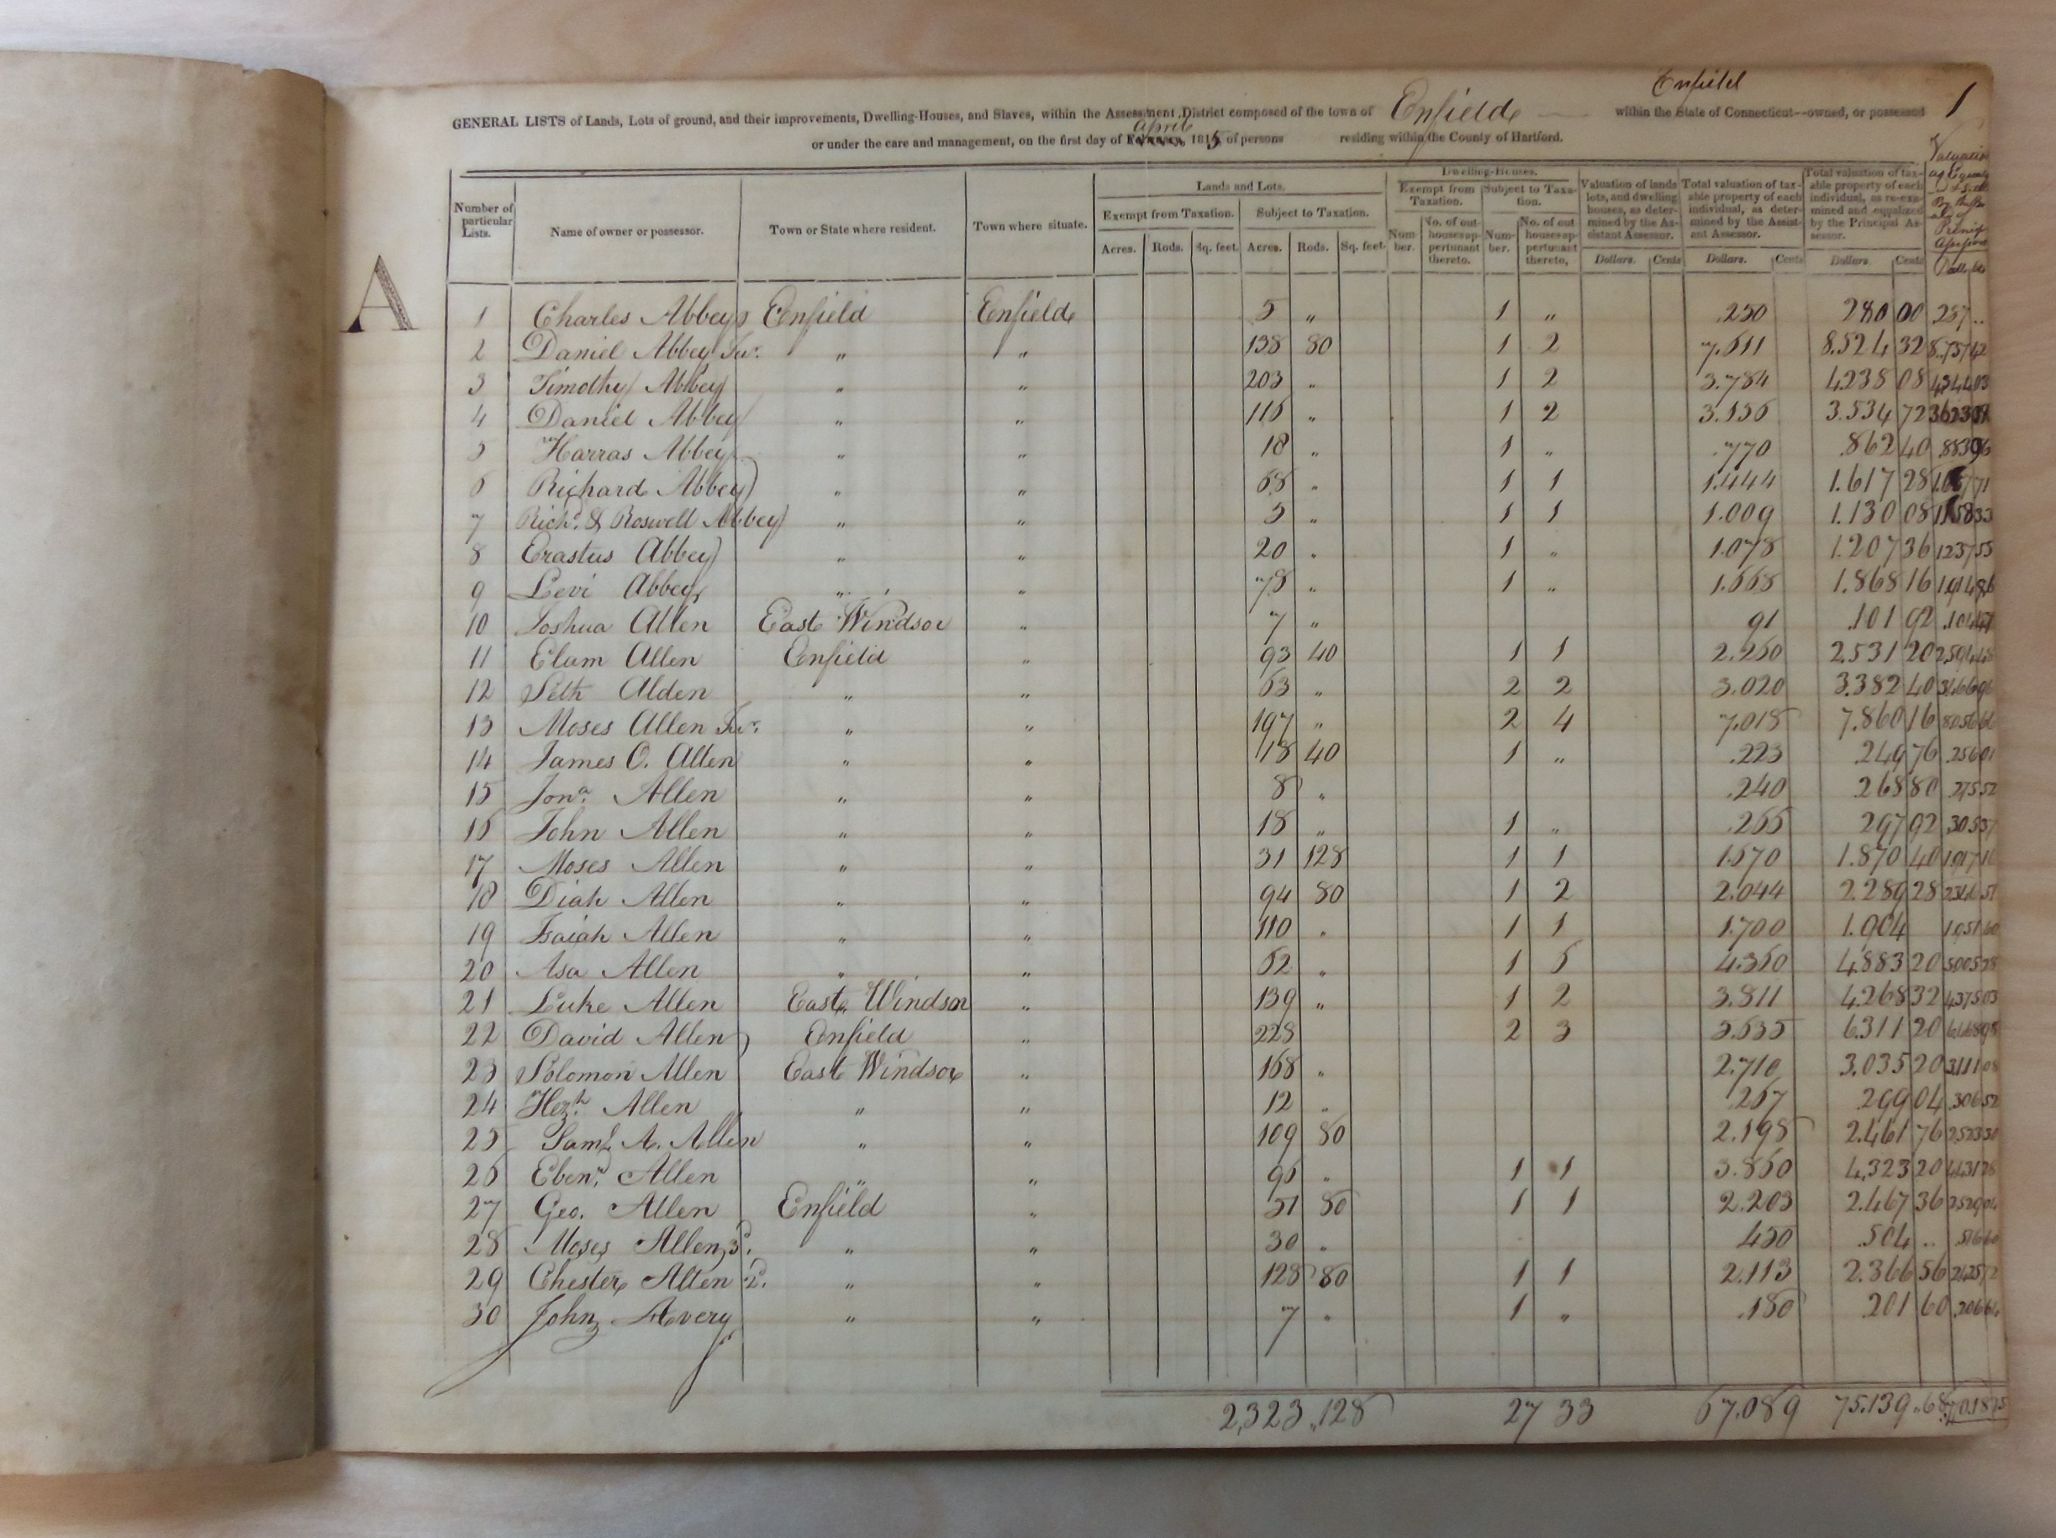 Enfield
GENERAL LISTS of Lands, Lots of ground, and their improvements, Dwelling-Houses, and Slaves, within the Assessment District composed of the town of Enfield within the State of Connecticut—owned, or possessed 1
or under the care and management, on the first day of April February, 1815 of persons residing within the County of Hartford.
Number of particular Lists. Name of owner or possessor. Town or State where resident. Town where situate. Lands and Lots. Dwelling-Houses. Valuation of lands lots, and dwelling houses, as determined by the Assistant Assessor. Total valuation of taxable property of each individual, as determined by the Assistant Assessor. Total valuation of taxable property of each individual, as re-examined and equalized by the Principal Assessor. Valuation
Exempt from Taxation. Subject to Taxation. Exempt from Taxation. Subject to Taxation.
Acres. Rods. Sq. feet. Acres. Rods. Sq. feet. Number. No. of outhouses appertunant thereto. Number. No. of outhouses appertunant thereto, Dollars. Cents Dollars. Cents Dollars. Cents
A
1 Charles Abbey Enfield Enfield 5 „ 1 „ .250 280 00 .257 ..
2 Daniel Abbey Jur. „ „ 138 80 1 2 7.611 8.524 32
3 Timothy Abbey „ „ 203 „ 1 2 3.784 4.238 08
4 Daniel Abbey „ „ 116 „ 1 2 3.156 3.534 72
5 Harras Abbey „ „ 18 „ 1 „ .770 .862 40
6 Richard Abbey „ „ 68 „ 1 1 1.444 1.617 28
7 Richd. & Roswell Abbey „ „ 5 „ 1 1 1.009 1.130 08
8 Erastus Abbey „ „ 20 „ 1 „ 1.078 1.207 36 1237 55
9 Levi Abbey „ „ 78 „ 1 „ 1.668 1.868 16
10 Joshua Allen East Windsor „ 7 „ 91 .101 92
11 Elam Allen Enfield „ 93 40 1 1 2.260 2.531 20
12 Seth Alden „ „ 63 „ 2 2 3.020 3.382 40
13 Moses Allen Jur. „ „ 197 „ 2 4 7.018 7.860 16
14 James O. Allen „ „ 18 40 1 „ .223 .249 76
15 Jona. Allen „ „ 8 „ .240 .268 80 .275 52
16 John Allen „ „ 18 „ 1 „ .266 297 92
17 Moses Allen „ „ 31 128 1 1 1.670 1.870 40
18 Diah Allen „ „ 94 80 1 2 2.044 2.289 28
19 Isaiah Allen „ „ 110 „ 1 1 1.700 1.904 1.951 60
20 Asa Allen „ „ 62 „ 1 5 4.360 4.883 20
21 Luke Allen East Windsor „ 139 „ 1 2 3.811 4.268 32
22 David Allen Enfield „ 228 2 3 5.635 6.311 20
23 Solomon Allen East Windsor „ 168 „ 2.710 3.035 20 3111 08
24 Hezh. Allen „ „ 12 „ .267 .299 04 .306 52
25 Saml. A. Allen „ „ 109 80 2.198 2.461 76
26 Ebenr. Allen „ „ 96 „ 1 1 3.860 4.323 20
27 Geo. Allen Enfield „ 51 80 1 1 2.203 2.467 36
28 Moses Allen, 3d. „ „ 30 „ 450 .504 .. .516 60
29 Chester Allen 2d. „ „ 128 80 1 1 2.113 2.366 56
30 John Avery „ „ 7 „ 1 „ .180 .201 60 .206 64
2,323 „128 27 33 67.089 75.139 .68